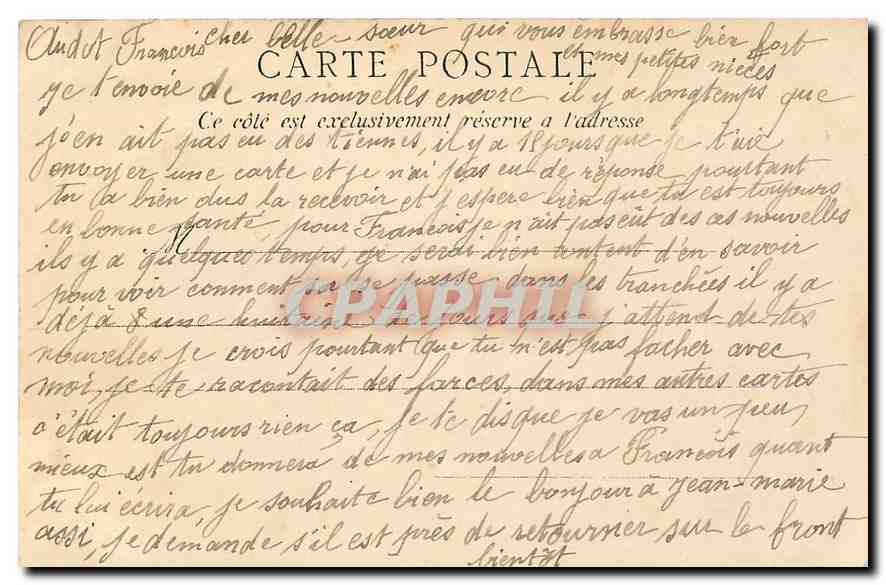 Audot François cher belle-sœur qui vous embrasse bien fort
et mes petites nièces
CARTE POSTALE
je t'envoie de mes nouvelles encore il y a longtemps que
Ce côté est exclusivement réservé a l'adresse
j'en ait pas eu des tiennes, il y a 18 jours que je t'aie
envoyer une carte et je n'ai pas eu de réponse pourtant
tu a bien dus la recevoir et j'espere bien que tu est toujours
en bonne santé, pour François je n'ait pas eût des ces nouvelles
ils y a quelques temps, je serai bien content d'en savoir
pour voir comment sa se passe dans les tranchées il y a
déjà 8 une huitaine de jours que j'attend de tes
nouvelles je crois pourtant que tu n'est pas facher avec
moi, je te racontait des farces, dans mes autres cartes
c'était toujours rien ça, je te dis que je vas un peu
mieux est tu donnera de mes nouvelles a François quant
tu lui écrira, je souhaite bien le bonjour à Jean-Marie
assi, je demande s'il est près de retourner sur le front
bientôt
CPAPHIL